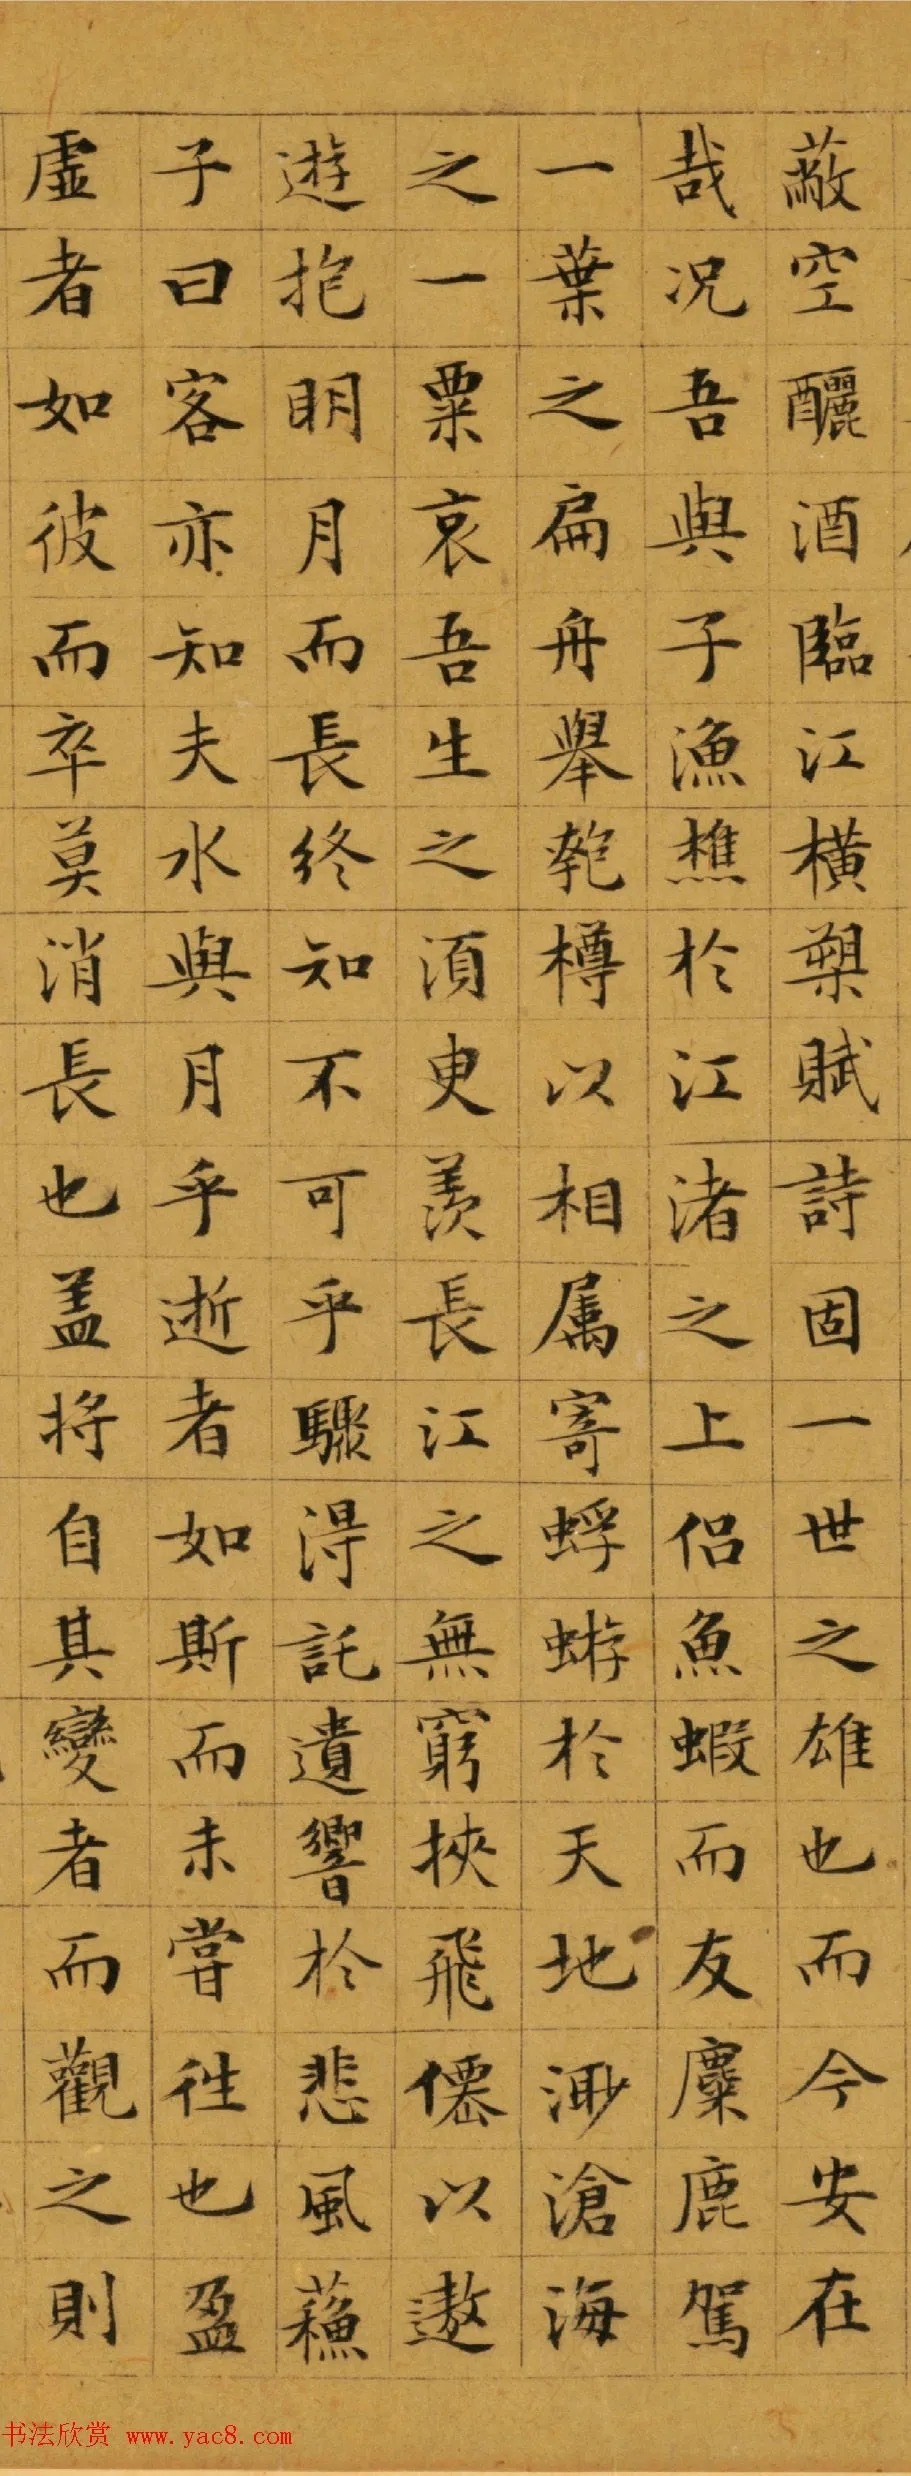 蔽空釃酒臨江橫槊賦詩固一世之雄也而今安在
哉況吾與子漁樵於江渚之上侣魚蝦而友麋鹿駕
一葉之扁舟舉匏樽以相属寄蜉蝣於天地渺滄海
之一粟哀吾生之湏臾羨長江之無窮挾飛僊以遨
遊抱明月而長終知不可乎驟得託遺響於悲風蘓
子曰客亦知夫水與月乎逝者如斯而未嘗往也盈
虛者如彼而卒莫消長也盖将自其變者而觀之則
书法欣赏 www.yac8.com